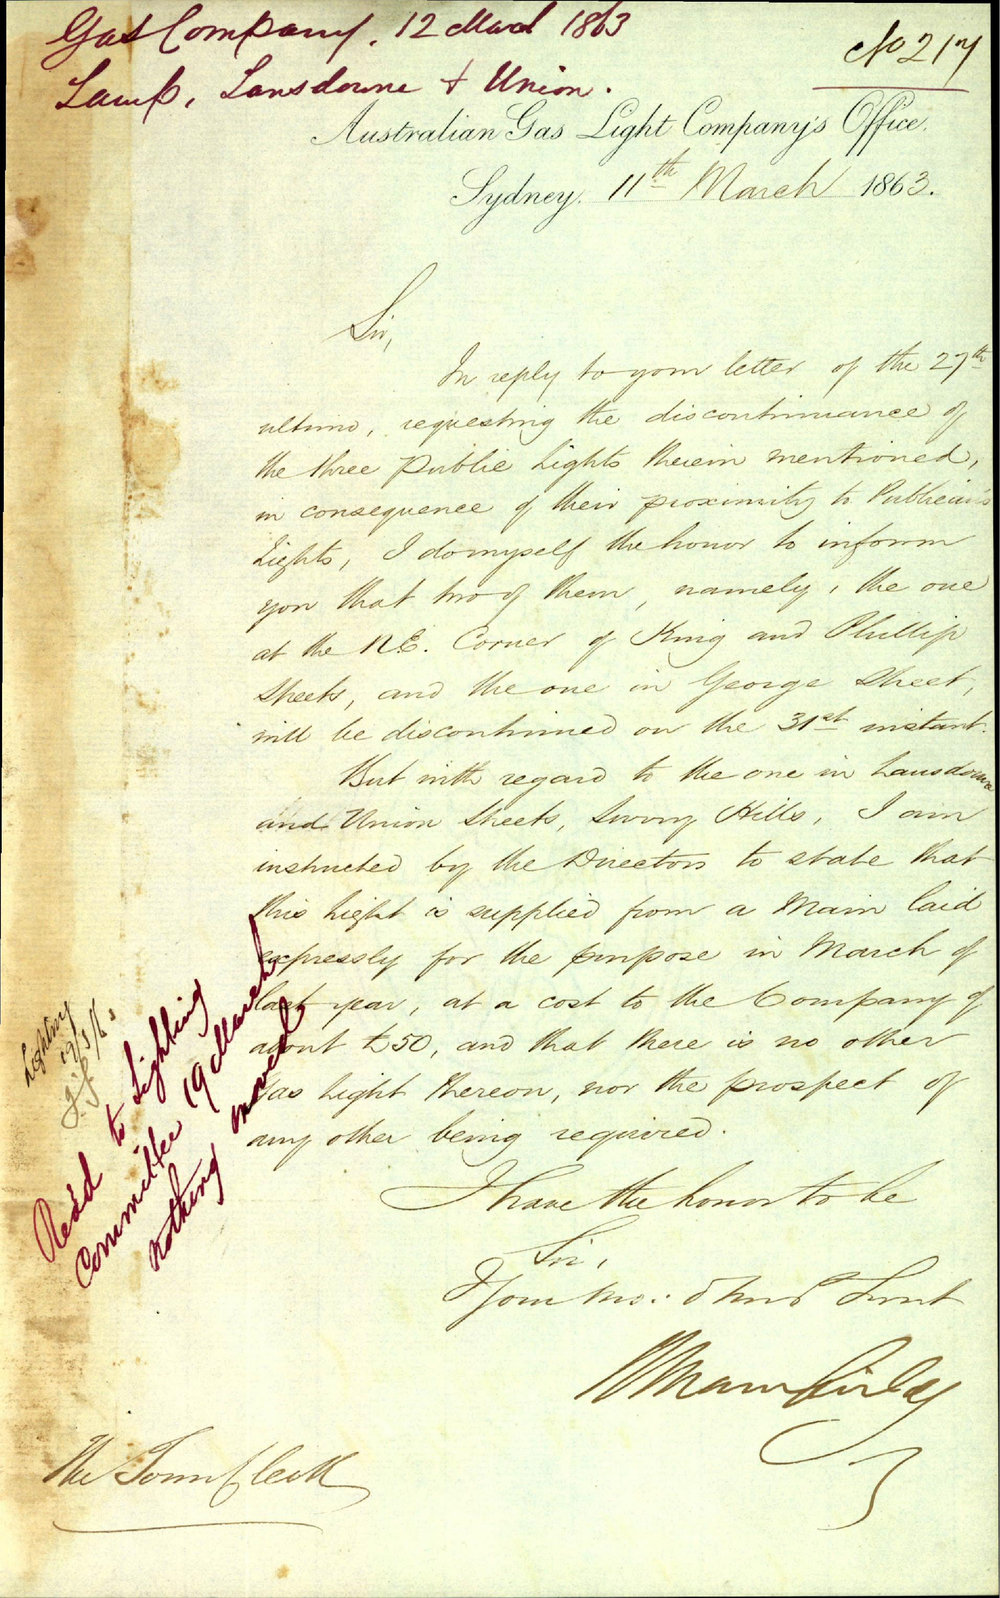 Gas Company. 12 March 1863
No 217
Lamp, Lansdowne & Union.
Australian Gas Light Company's Office.
Sydney. 11th March 1863.
Sir,
In reply to your letter of the 27th
ultimo, requesting the discontinuance of
the three Public Lights therein mentioned,
in consequence of their proximity to Publican's
Lights, I do myself the honor to inform
you that two of them, namely, the one
at the N.E. Corner of King and Phillip
Streets, and the one in George Street,
will be discontinued on the 31st instant.
But with regard to the one in Lansdowne
and Union Streets, Surry Hills, I am
instructed by the Directors to state that
this Light is supplied from a Main laid
expressly for the purpose in March of
last year, at a cost to the Company of
about £50, and that there is no other
Gas Light thereon, nor the prospect of
any other being required.
I have the honor to be
Sir,
Your Mo: Obed Servt
The Town Clerk
Lighting
19/3/63
Read to Lighting
Committee 19 March
nothing moved